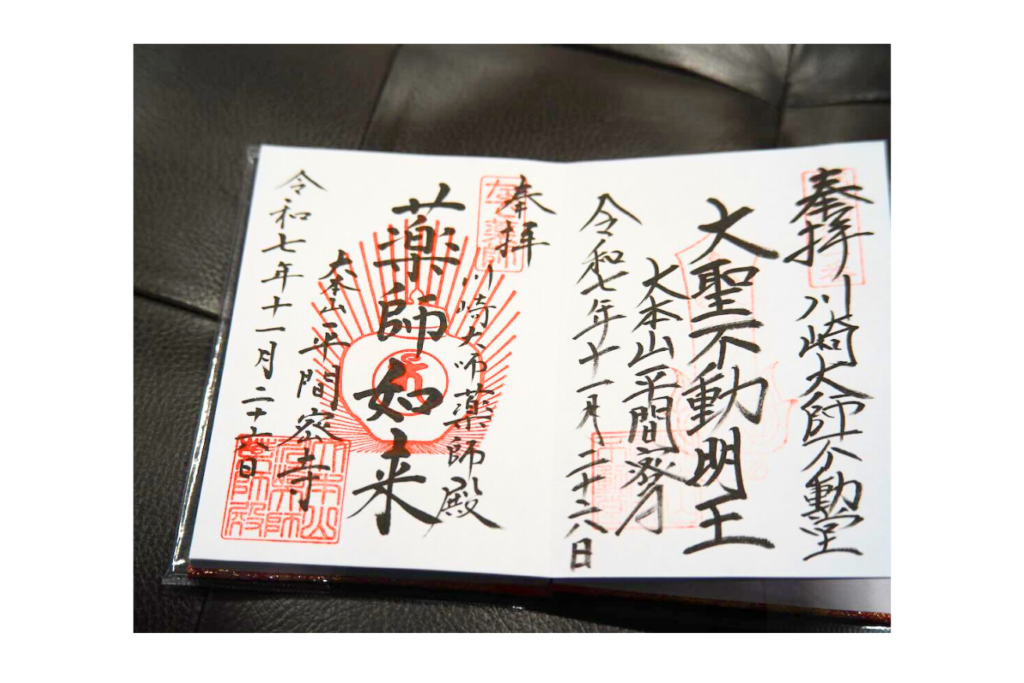 奉拝
川崎大師不動堂
大聖不動明王
大本山平間寺
令和七年十一月二十六日
奉拝
なで薬師
川崎大師薬師殿
薬師如来
大本山平間寺
令和七年十一月二十六日